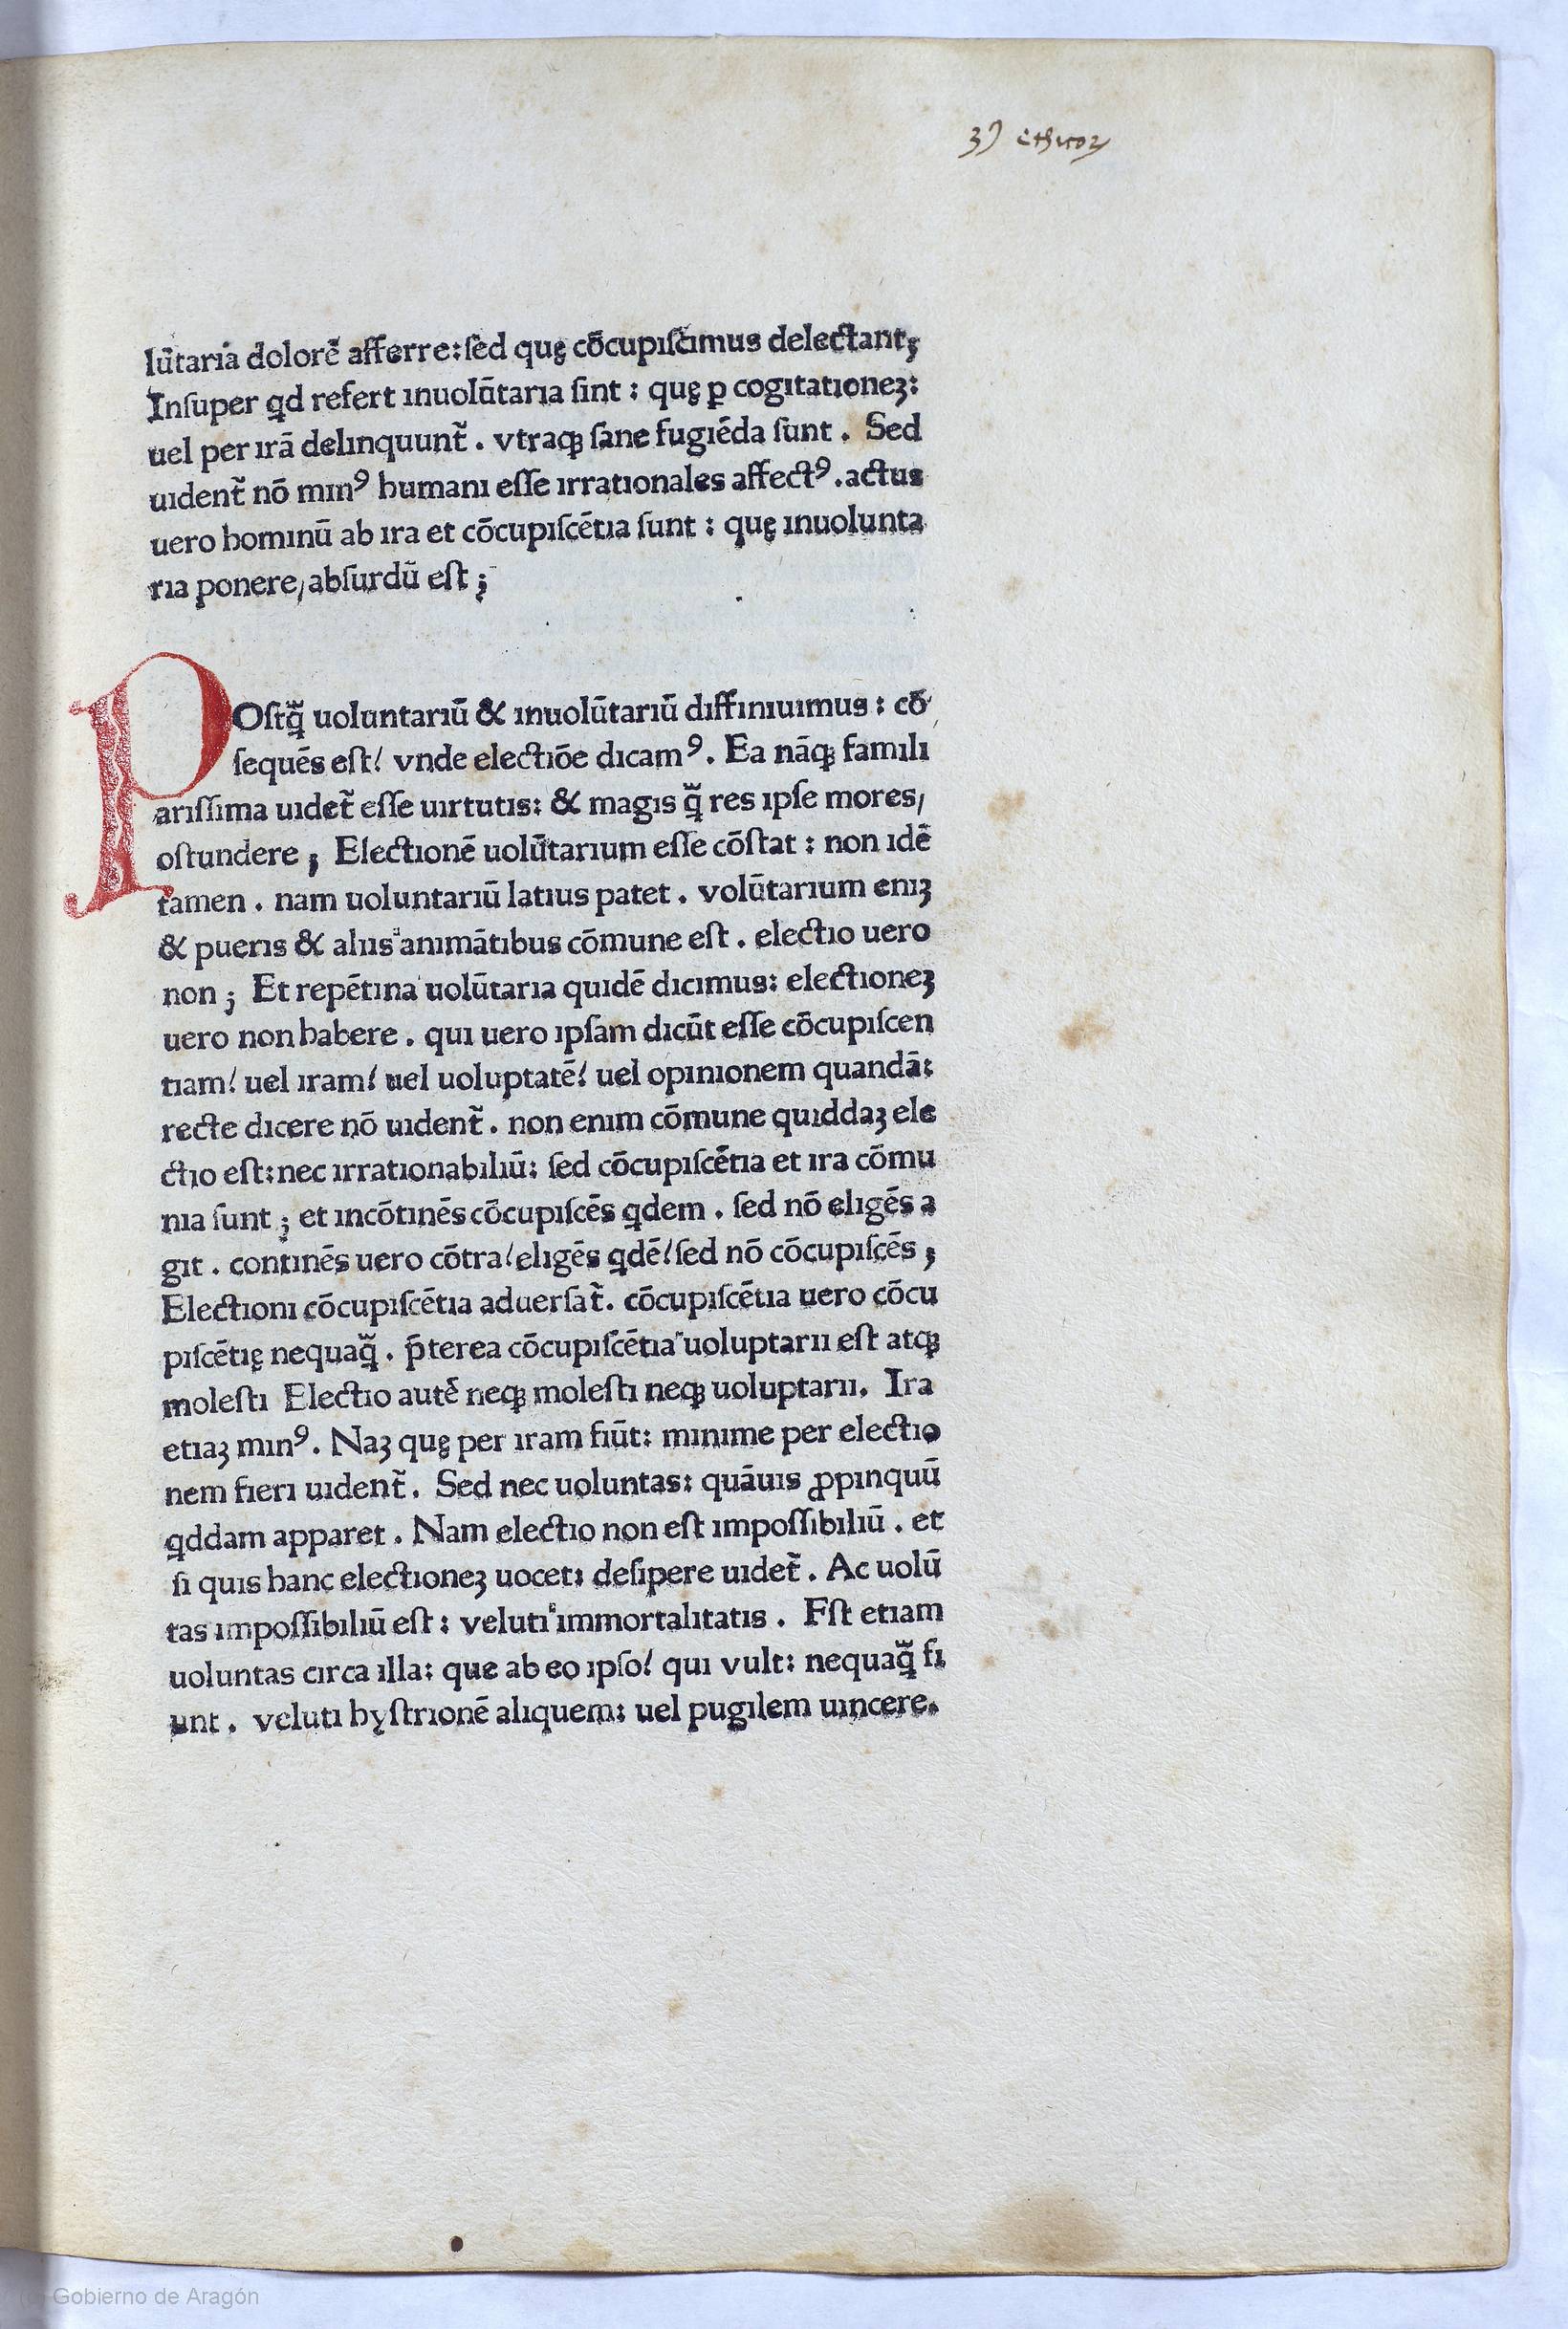 3⁹ ethicoꝝ
lūtaria dolorē afferre: ſed quę cōcupiſcimus delectant;
Inſuper qd refert inuolūtaria ſint : quę ꝑ cogitationeꝫ:
uel per irā delinquunt᷑ . vtraqꝫ ſane fugiēda ſunt . Sed
uident᷑ nō minꝰ humani eſſe irrationales affectꝰ . actus
uero hominū ab ira et cōcupiſcētia ſunt : quę inuolunta
ria ponere/ abſurdū eſt ;
POſtq̄ uoluntariū & inuolūtariū diffiniuimus : cō
ſequēs eſt/ vnde electiōe dicamꝰ . Ea nāqꝫ famili
ariſſima uidet᷑ eſſe uirtutis: & magis q̄ res ipſe mores/
oſtundere ; Electionē uolūtarium eſſe cōſtat : non idē
tamen . nam uoluntariū latius patet . volūtarium eniꝫ
& pueris & aliis animātibus cōmune eſt . electio uero
non ; Et repētina uolūtaria quidē dicimus: electioneꝫ
uero non habere . qui uero ipſam dicūt eſſe cōcupiſcen
tiam/ uel iram/ uel uoluptatē/ uel opinionem quandā:
recte dicere nō uident᷑ . non enim cōmune quiddaꝫ ele
ctio eſt: nec irrationabiliū: ſed cōcupiſcētia et ira cōmu
nia ſunt ; et incōtinēs cōcupiſcēs qdem . ſed nō eligēs a
git . continēs uero cōtra/ eligēs qdē/ ſed nō cōcupiſcēs ;
Electioni cōcupiſcētia aduerſat᷑. cōcupiſcētia uero cōcu
piſcētię nequaq̄ . p̄terea cōcupiſcētia uoluptarii eſt atqꝫ
moleſti Electio autē neqꝫ moleſti neqꝫ uoluptarii. Ira
etiaꝫ minꝰ. Naꝫ quę per iram fiūt: minime per electio
nem fieri uident᷑. Sed nec uoluntas: quāuis ꝓpinquū
qddam apparet . Nam electio non eſt impoſſibiliū . et
ſi quis hanc electioneꝫ uocet: deſipere uidet᷑ . Ac uolū
tas impoſſibiliū eſt : veluti immortalitatis . Fſt etiam
uoluntas circa illa: que ab eo ipſo/ qui vult: nequaq̄ fi
unt . veluti hyſtrionē aliquem: uel pugilem uincere.
(c) Gobierno de Aragón